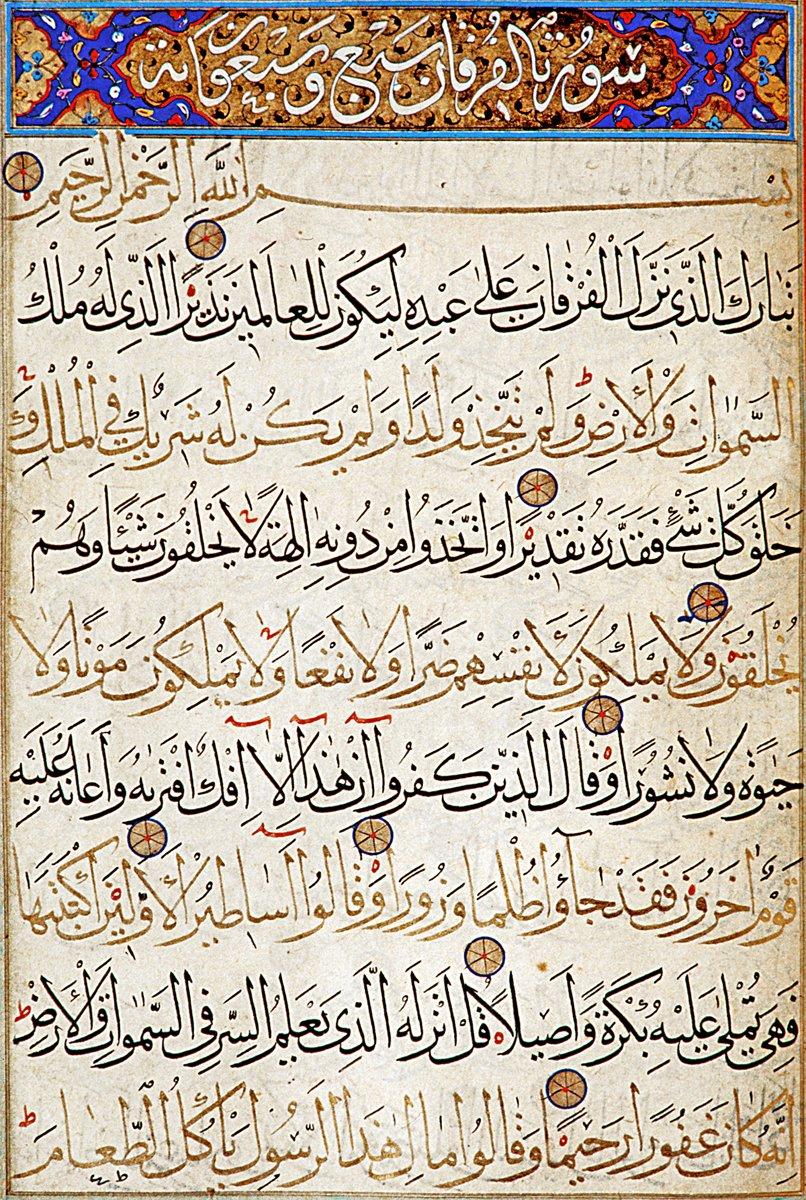 سورة الفرقان سبع وسبعون اية
بِسْمِ اللهِ الرَّحْمٰنِ الرَّحِيمِ
تَبَارَكَ الَّذِي نَزَّلَ الْفُرْقَانَ عَلٰى عَبْدِهِ لِيَكُونَ لِلْعَالَمِينَ نَذِيرًا الَّذِي لَهُ مُلْكُ
السَّمٰوَاتِ وَالْاَرْضِ وَلَمْ يَتَّخِذْ وَلَدًا وَلَمْ يَكُنْ لَهُ شَرِيكٌ فِي الْمُلْكِ وَ
خَلَقَ كُلَّ شَيْءٍ فَقَدَّرَهُ تَقْدِيرًا وَاتَّخَذُوا مِنْ دُونِهِ اٰلِهَةً لَا يَخْلُقُونَ شَيْئًا وَهُمْ
يُخْلَقُونَ وَلَا يَمْلِكُونَ لِاَنْفُسِهِمْ ضَرًّا وَلَا نَفْعًا وَلَا يَمْلِكُونَ مَوْتًا وَلَا
حَيٰوةً وَلَا نُشُورًا وَقَالَ الَّذِينَ كَفَرُوا اِنْ هٰذَا اِلَّا اِفْكٌ افْتَرٰيهُ وَاَعَانَهُ عَلَيْهِ
قَوْمٌ اٰخَرُونَ فَقَدْ جَآؤُ ظُلْمًا وَزُورًا وَقَالُوا اَسَاطِيرُ الْاَوَّلِينَ اكْتَتَبَهَا
فَهِيَ تُمْلٰى عَلَيْهِ بُكْرَةً وَاَصِيلًا قُلْ اَنْزَلَهُ الَّذِي يَعْلَمُ السِّرَّ فِي السَّمٰوَاتِ وَالْاَرْضِ
اِنَّهُ كَانَ غَفُورًا رَحِيمًا وَقَالُوا مَالِ هٰذَا الرَّسُولِ يَاْكُلُ الطَّعَامَ